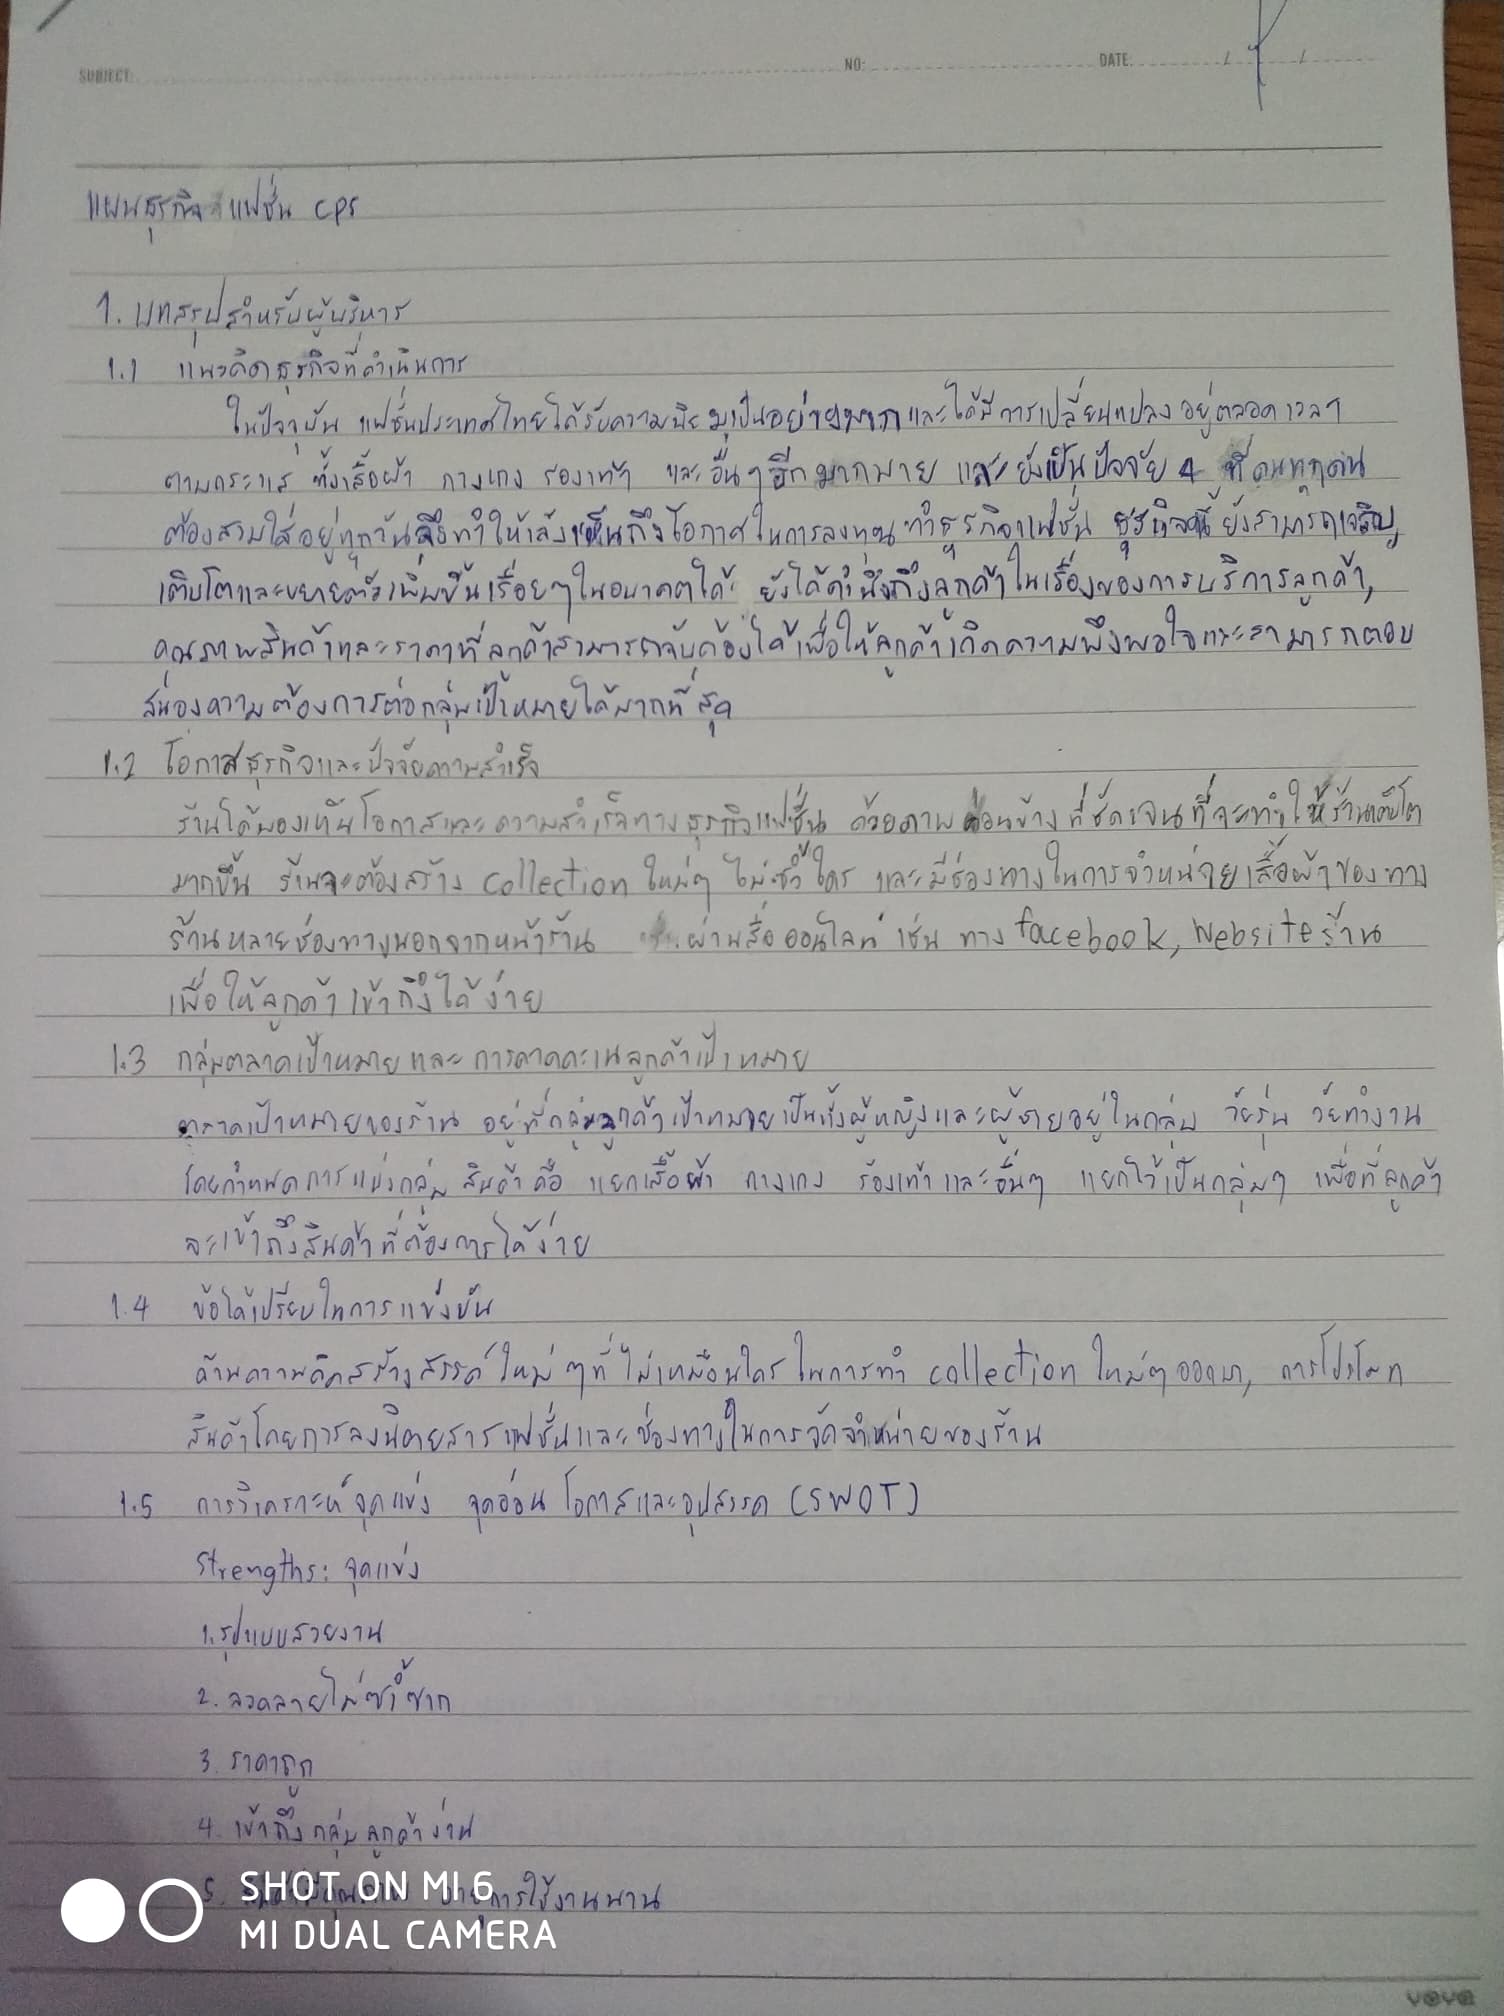 SUBJECT: NO: DATE: / /
แผนธุรกิจ แฟชั่น CPS
1. บทสรุปสำหรับผู้บริหาร
1.1 แนวคิดธุรกิจที่ดำเนินการ
ในปัจจุบัน แฟชั่นประเทศไทยได้รับความนิยมเป็นอย่างมากและได้มีการเปลี่ยนแปลงอยู่ตลอดเวลา
ตามกระแส ทั้งเสื้อผ้า กางเกง รองเท้า และอื่นๆอีกมากมาย และยังเป็นปัจจัย 4 ที่คนทุกคน
ต้องสวมใส่อยู่ทุกวันจึงทำให้เล็งเห็นถึงโอกาสในการลงทุนทำธุรกิจแฟชั่น ธุรกิจนี้ยังสามารถเจริญ
เติบโตและขยายตัวเพิ่มขึ้นเรื่อยๆในอนาคตได้ ยังได้คำนึงถึงลูกค้าในเรื่องของการบริการลูกค้า,
คุณภาพสินค้าและราคาที่ลูกค้าสามารถจับต้องได้เพื่อให้ลูกค้าเกิดความพึงพอใจและสามารถตอบ
สนองความต้องการต่อกลุ่มเป้าหมายได้มากที่สุด
1.2 โอกาสธุรกิจและปัจจัยความสำเร็จ
ร้านได้มองเห็นโอกาสและความสำเร็จทางธุรกิจแฟชั่น ด้วยภาพค่อนข้างที่ชัดเจนที่จะทำให้ร้านเติบโต
มากขึ้น ร้านจะต้องสร้าง collection ใหม่ๆ ไม่ซ้ำใคร และมีช่องทางในการจำหน่ายเสื้อผ้าของทาง
ร้านหลายช่องทางนอกจากหน้าร้าน ผ่านสื่อออนไลน์ เช่น ทาง facebook, Website ร้าน
เพื่อให้ลูกค้าเข้าถึงได้ง่าย
1.3 กลุ่มตลาดเป้าหมายและการคาดคะเนลูกค้าเป้าหมาย
ตลาดเป้าหมายของร้าน อยู่ที่กลุ่มลูกค้าเป้าหมายเป็นทั้งผู้หญิงและผู้ชายอยู่ในกลุ่ม วัยรุ่น วัยทำงาน
โดยกำหนดการแบ่งกลุ่มสินค้าคือ แยกเสื้อผ้า กางเกง รองเท้าและอื่นๆ แยกไว้เป็นกลุ่มๆ เพื่อที่ลูกค้า
จะเข้าถึงสินค้าที่ต้องการได้ง่าย
1.4 ข้อได้เปรียบในการแข่งขัน
ด้านความคิดสร้างสรรค์ใหม่ๆที่ไม่เหมือนใครในการทำ collection ใหม่ๆออกมา, การโปรโมท
สินค้าโดยการลงนิตยสารแฟชั่นและช่องทางในการจัดจำหน่ายของร้าน
1.5 การวิเคราะห์จุดแข่ง จุดอ่อน โอกาสและอุปสรรค (SWOT)
Strengths: จุดแข่ง
1. รูปแบบสวยงาม
2. ลวดลายไม่ซ้ำซาก
3. ราคาถูก
4. เข้าถึงกลุ่มลูกค้าง่าย
5. อายุการใช้งานนาน
SHOT ON MI 6
MI DUAL CAMERA